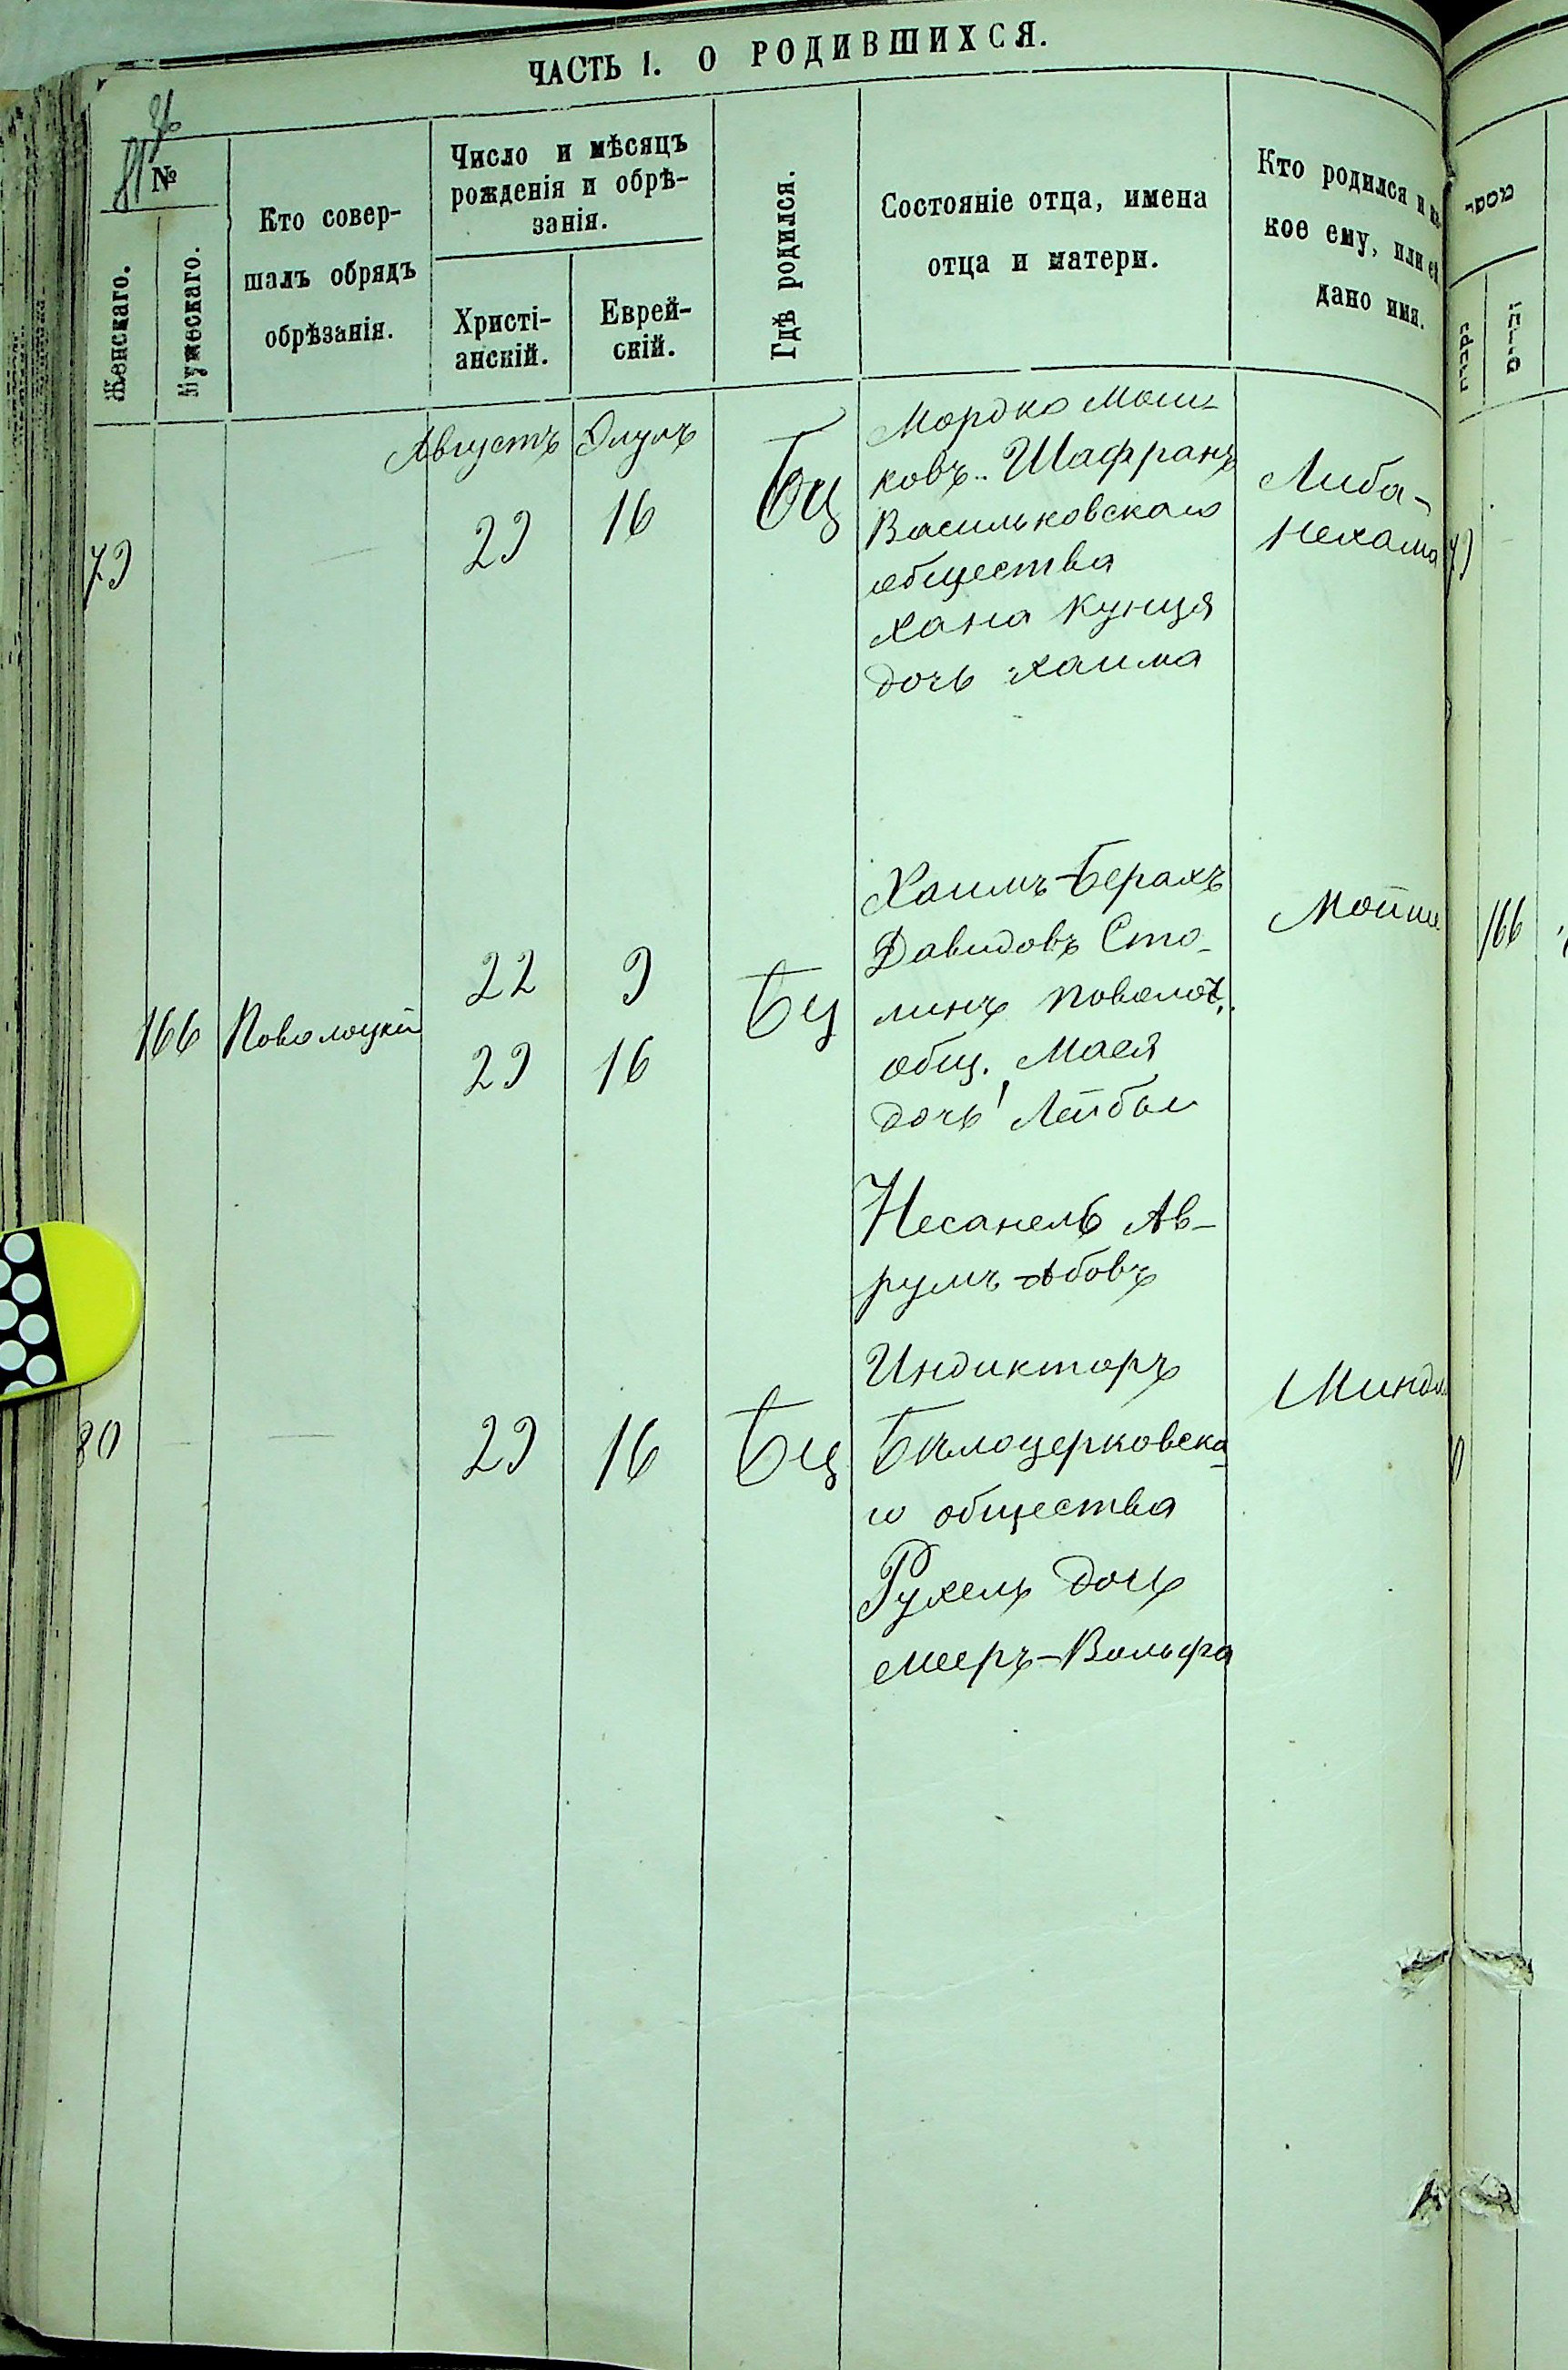 ЧАСТЬ I. О РОДИВШИХСЯ.
№
Женскаго.
Мужескаго.
Кто совер-
шалъ обрядъ
обрѣзанія.
Число и мѣсяцъ
рожденія и обрѣ-
занія.
Христі-
анскій.
Еврей-
скій.
Гдѣ родился.
Состояніе отца, имена
отца и матери.
Кто родился и ка-
кое ему, или ей
дано имя.
Августъ Элулъ
79
29 16 Бц
Мордко Мош-
ковъ Шафранъ
Васильковскаго
общества
Хана Кунця
дочь Хаима
Либа-
Нехама
166 Поволоцкій
22 9
29 16
Бц
Хаимъ-Берахъ
Давидовъ Сто-
линъ Поволоч.
общ. Мася
дочь Лейбы
Мойше
166
80
29 16 Бц
Несанель Ав-
румъ-Абовъ
Индикторъ
Бѣлоцерковска-
го общества
Рухель дочь
Мееръ-Вольфа
Миндл